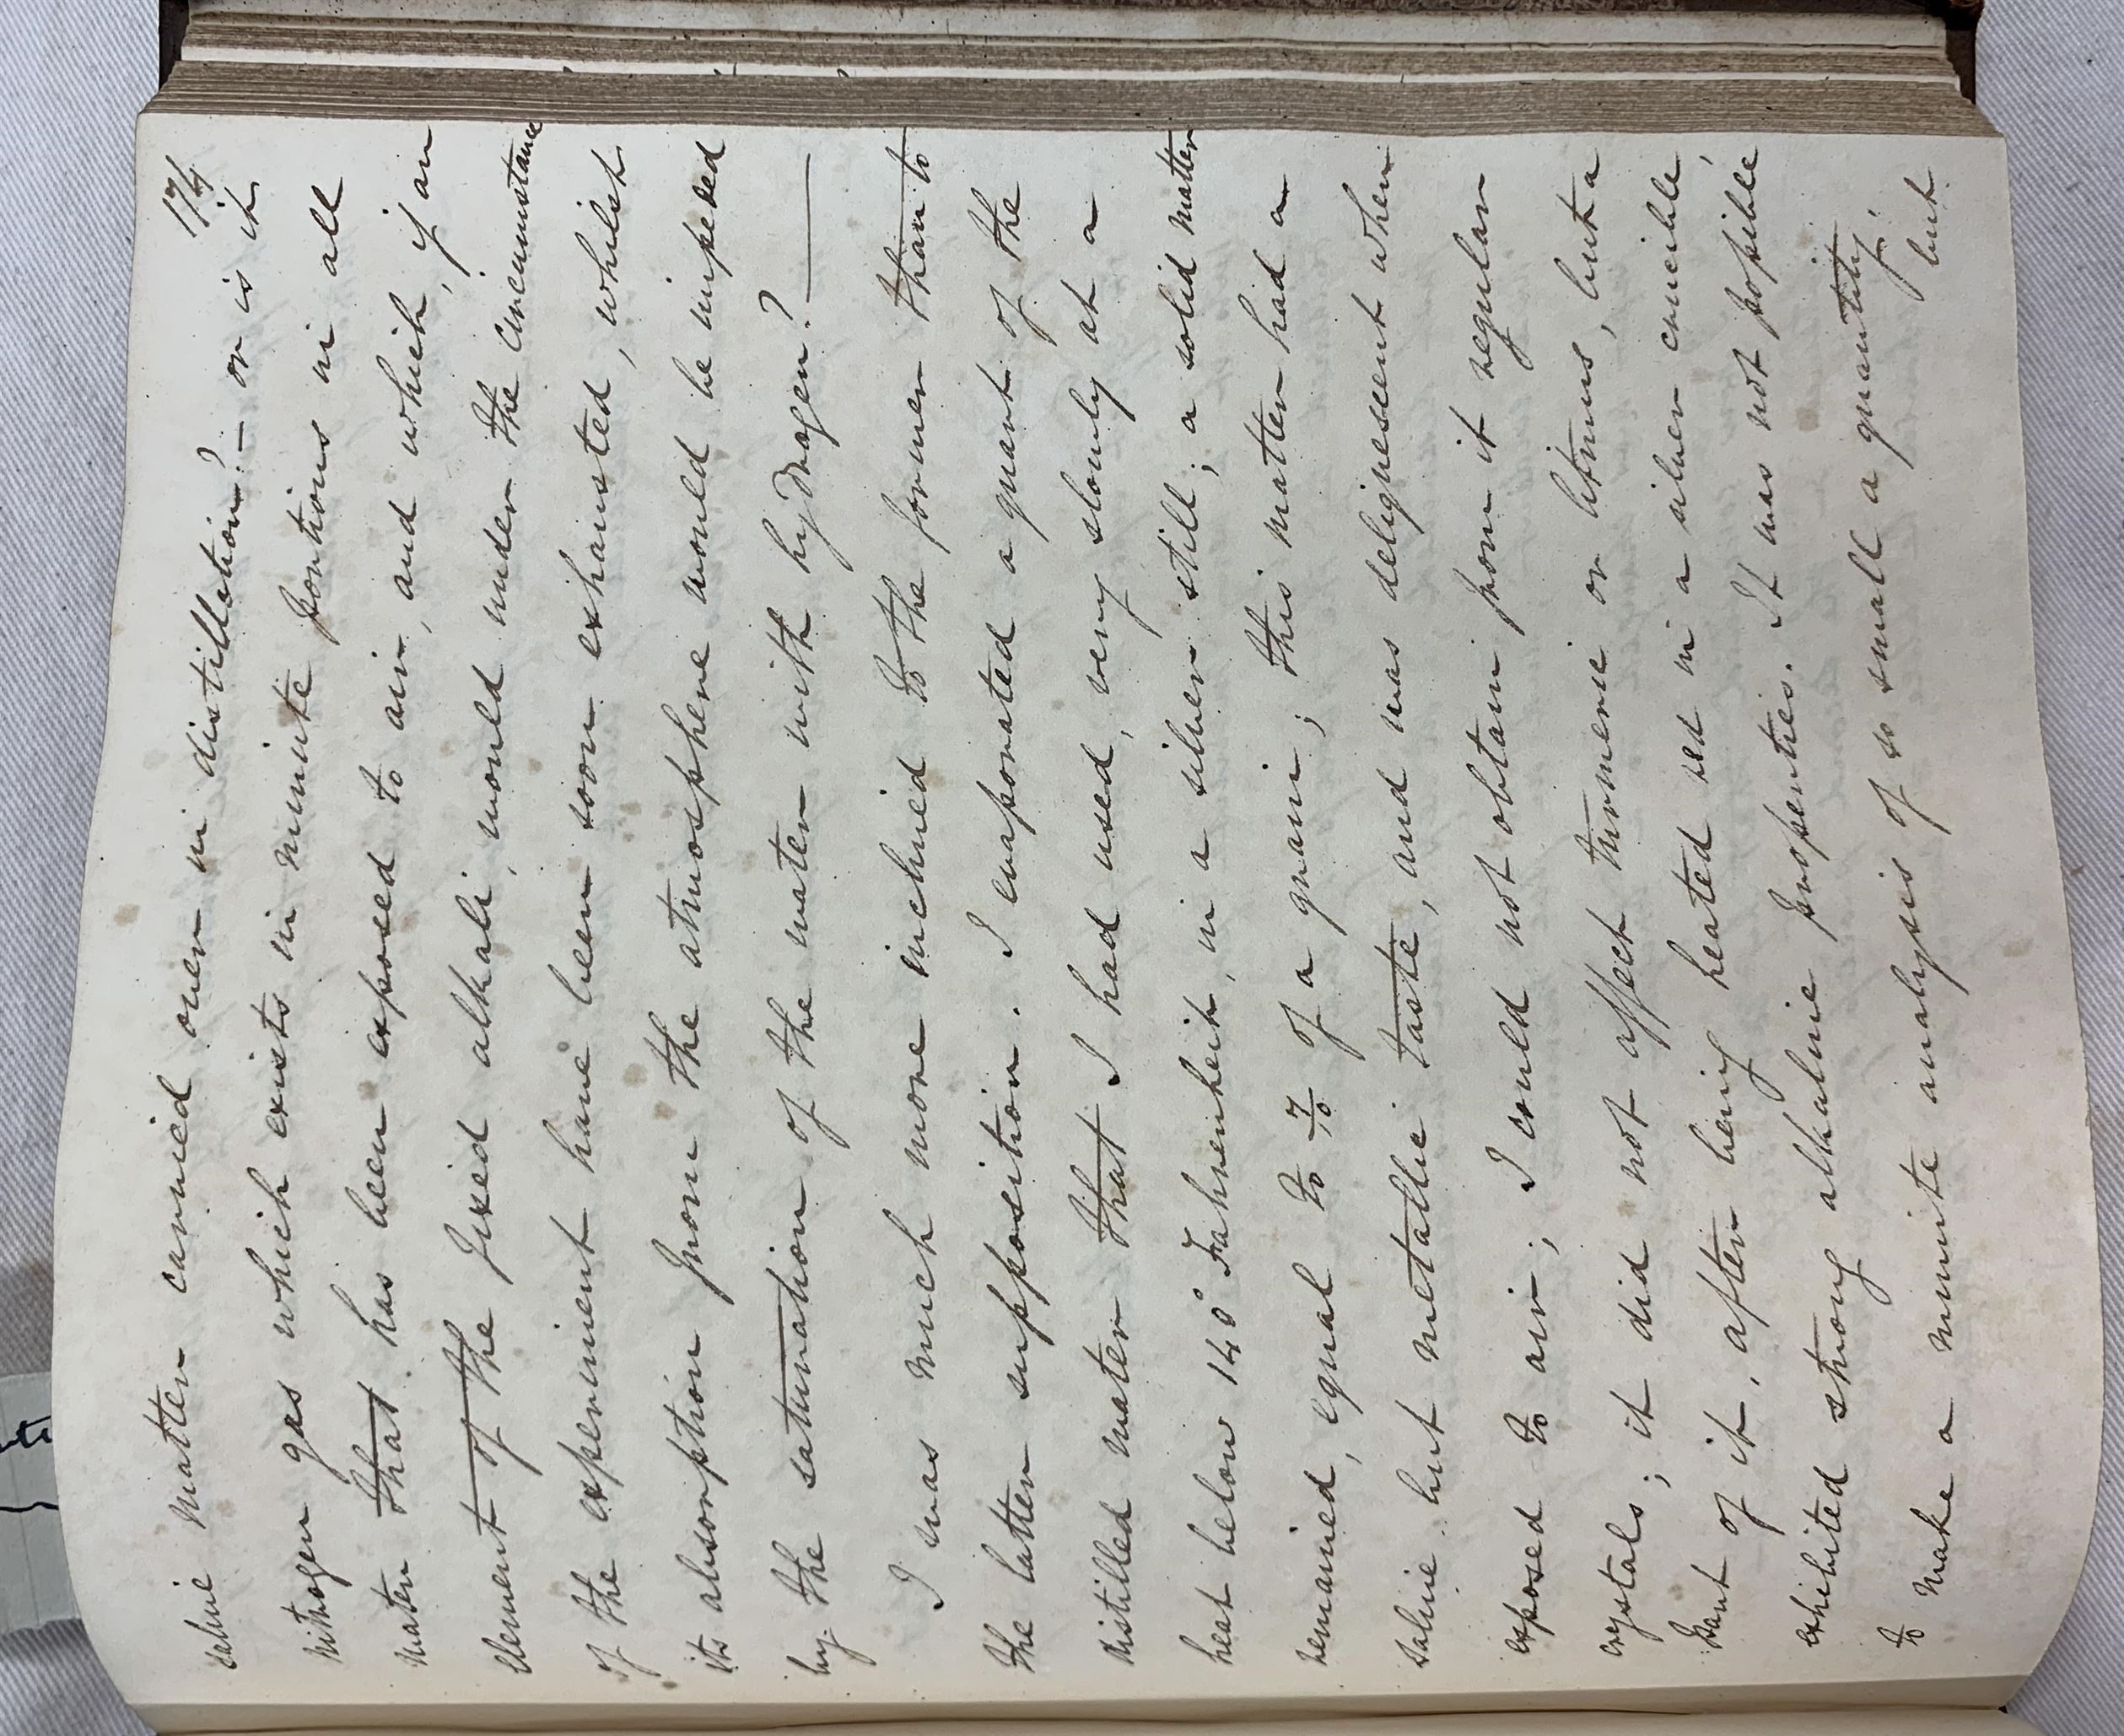 174
saline matter carried over in distillation? – or is it
nitrogen gas which exists in minute portions in all
water that has been exposed to air, and which, if an
element of the fixed alkali, would under the circumstance
of the experiment have been soon exhausted, whilst
its absorption from the atmosphere would be impeded
by the saturation of the water with hydrogen? ———
I was much more inclined to the former than to
the latter supposition. I evaporated a quart of the
distilled water that I had used, very slowly at a
heat below 140° Fahrenheit, in a silver still; a solid matter
remained, equal to 7/10 of a grain; this matter had a
saline but metallic taste, and was deliquescent when
exposed to air; I could not obtain from it regular
crystals; it did not affect turmeric or litmus, but a
part of it, after being heated red in a silver crucible,
exhibited strong alkaline properties. It was not possible
to make a minute analysis of so small a quantity,
but